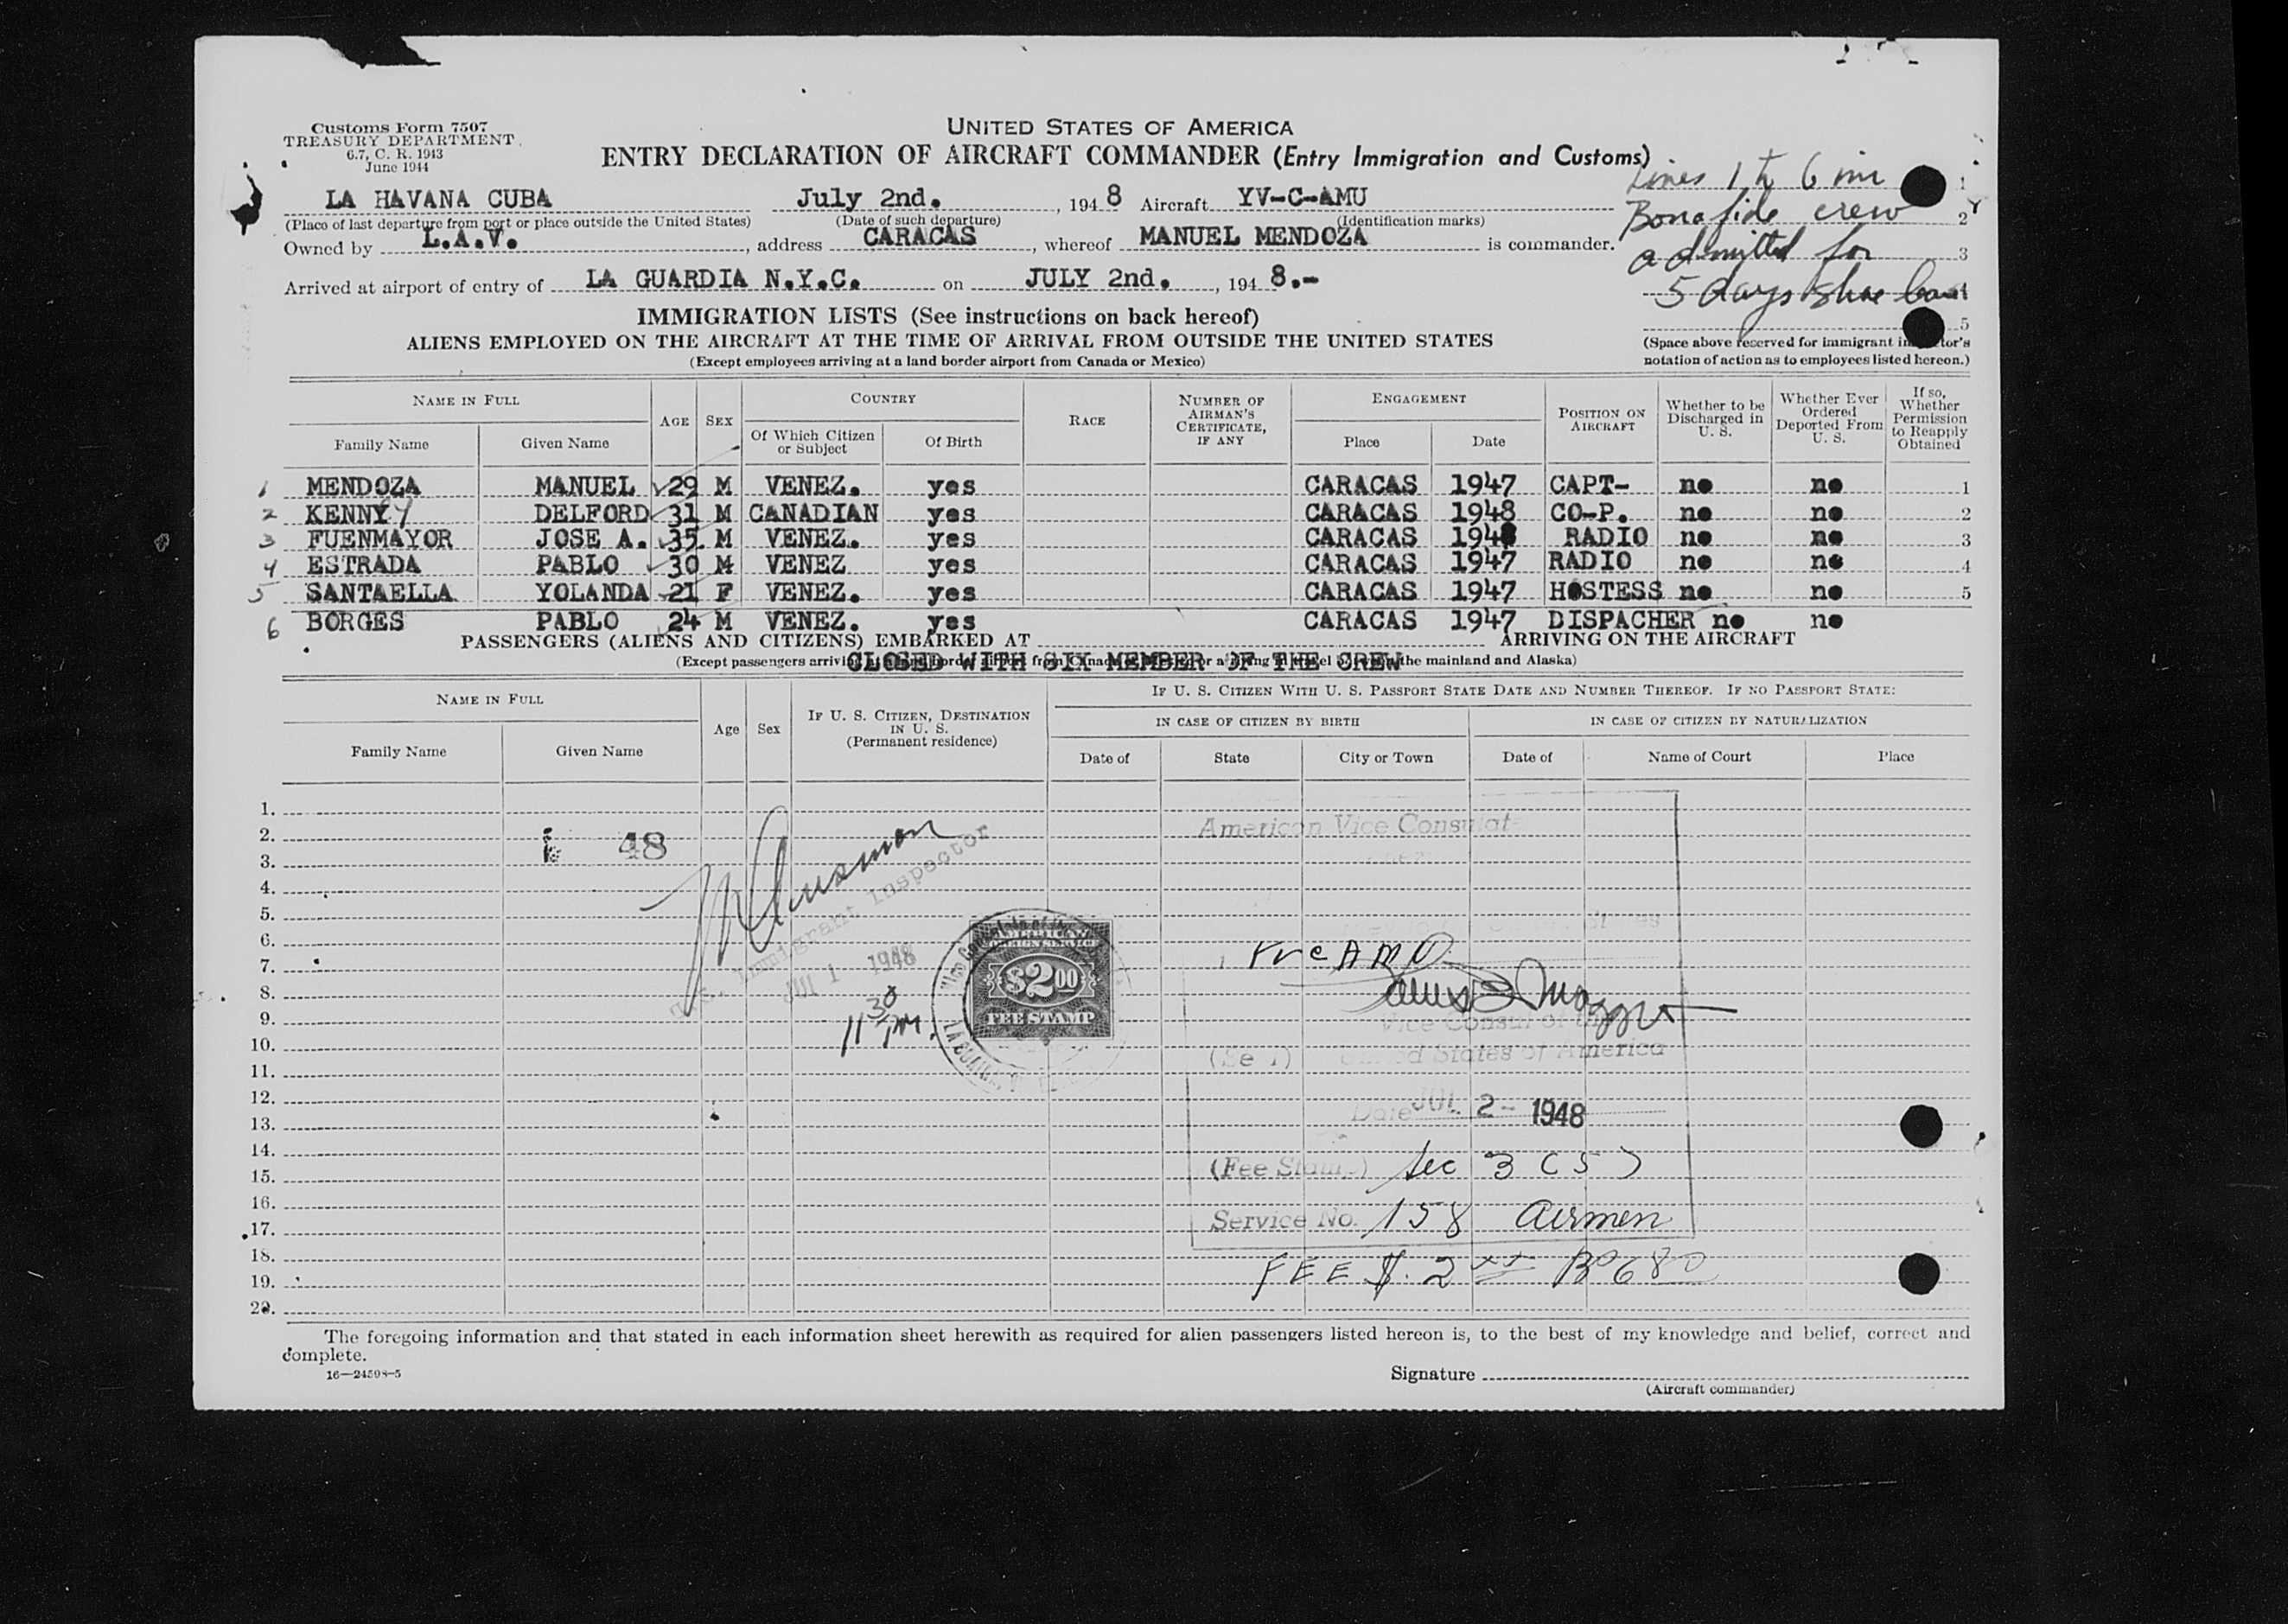 Customs Form 7507
TREASURY DEPARTMENT
6.7, C. R. 1943
June 1944
UNITED STATES OF AMERICA
ENTRY DECLARATION OF AIRCRAFT COMMANDER (Entry Immigration and Customs)
Lines 1 to 6 inc 1
LA HAVANA CUBA July 2nd. , 194 8 Aircraft YV-C-AMU
Bonafide crew 2
(Place of last departure from port or place outside the United States) (Date of such departure) (Identification marks)
Owned by L.A.V. , address CARACAS , whereof MANUEL MENDOZA is commander.
admitted for 3
Arrived at airport of entry of LA GUARDIA N.Y.C. on JULY 2nd. , 194 8.-
5 days
5
IMMIGRATION LISTS (See instructions on back hereof)
ALIENS EMPLOYED ON THE AIRCRAFT AT THE TIME OF ARRIVAL FROM OUTSIDE THE UNITED STATES
(Except employees arriving at a land border airport from Canada or Mexico)
(Space above reserved for immigrant inspector's
notation of action as to employees listed hereon.)
NAME IN FULL AGE SEX COUNTRY RACE NUMBER OF AIRMAN'S CERTIFICATE, IF ANY ENGAGEMENT POSITION ON AIRCRAFT Whether to be Discharged in U. S. Whether Ever Ordered Deported From U. S. If so, Whether Permission to Reapply Obtained
Family Name Given Name Of Which Citizen or Subject Of Birth Place Date
1 MENDOZA MANUEL 29 M VENEZ. yes CARACAS 1947 CAPT- no no 1
2 KENNY DELFORD 31 M CANADIAN yes CARACAS 1948 CO-P. no no 2
3 FUENMAYOR JOSE A. 35 M VENEZ. yes CARACAS 1948 RADIO no no 3
4 ESTRADA PABLO 30 M VENEZ yes CARACAS 1947 RADIO no no 4
5 SANTAELLA YOLANDA 21 F VENEZ. yes CARACAS 1947 HOSTESS no no 5
6 BORGES PABLO 24 M VENEZ. yes CARACAS 1947 DISPACHER no no
PASSENGERS (ALIENS AND CITIZENS) EMBARKED AT ARRIVING ON THE AIRCRAFT
CLOSED WITH SIX MEMBER OF THE CREW
NAME IN FULL Age Sex IF U. S. CITIZEN, DESTINATION IN U. S. (Permanent residence) IF U. S. CITIZEN WITH U. S. PASSPORT STATE DATE AND NUMBER THEREOF. IF NO PASSPORT STATE:
IN CASE OF CITIZEN BY BIRTH IN CASE OF CITIZEN BY NATURALIZATION
Family Name Given Name Date of State City or Town Date of Name of Court Place
1.
2. 48
American Vice Consulat
3.
4.
5.
6.
7.
8.
9.
10.
11.
12.
13.
14.
15.
16.
17.
18.
19.
20.
U.S. Immigrant Inspector
JUL 1 1948
11 30 PM.
AMERICAN
FOREIGN SERVICE
$2.00
FEE STAMP
Vice Consul of the
United States of America
Date JUL 2 - 1948
(Fee Stamp) Sec 3 (5)
Service No. 158 Airmen
FEE $. 2
The foregoing information and that stated in each information sheet herewith as required for alien passengers listed hereon is, to the best of my knowledge and belief, correct and
complete.
16—24598-5
Signature
(Aircraft commander)